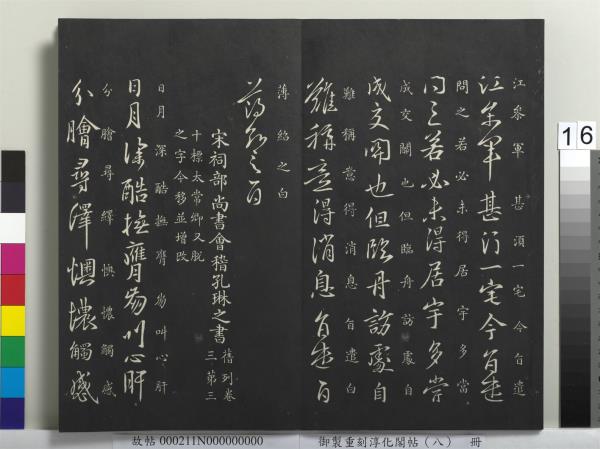 江參軍甚須一宅今自遣
江參軍甚須一宅今自遣
問之若必未得居宇多當
問之若必未得居宇多當
成交關也但臨舟訪處自
成交關也但臨舟訪處自
難稱意得消息自遣白
難稱意得消息自遣白
薄紹之白
薄紹之白
宋祠部尚書會稽孔琳之書
舊列卷
三第三
十標太常卿又脫
之字今移並增改
日月深酷撫膺叫心肝
日月深酷撫膺叫心肝
分膾尋繹懊憹觸感
分膾尋繹懊憹觸感
16
故帖 000211N000000000
御製重刻淳化閣帖（八） 冊